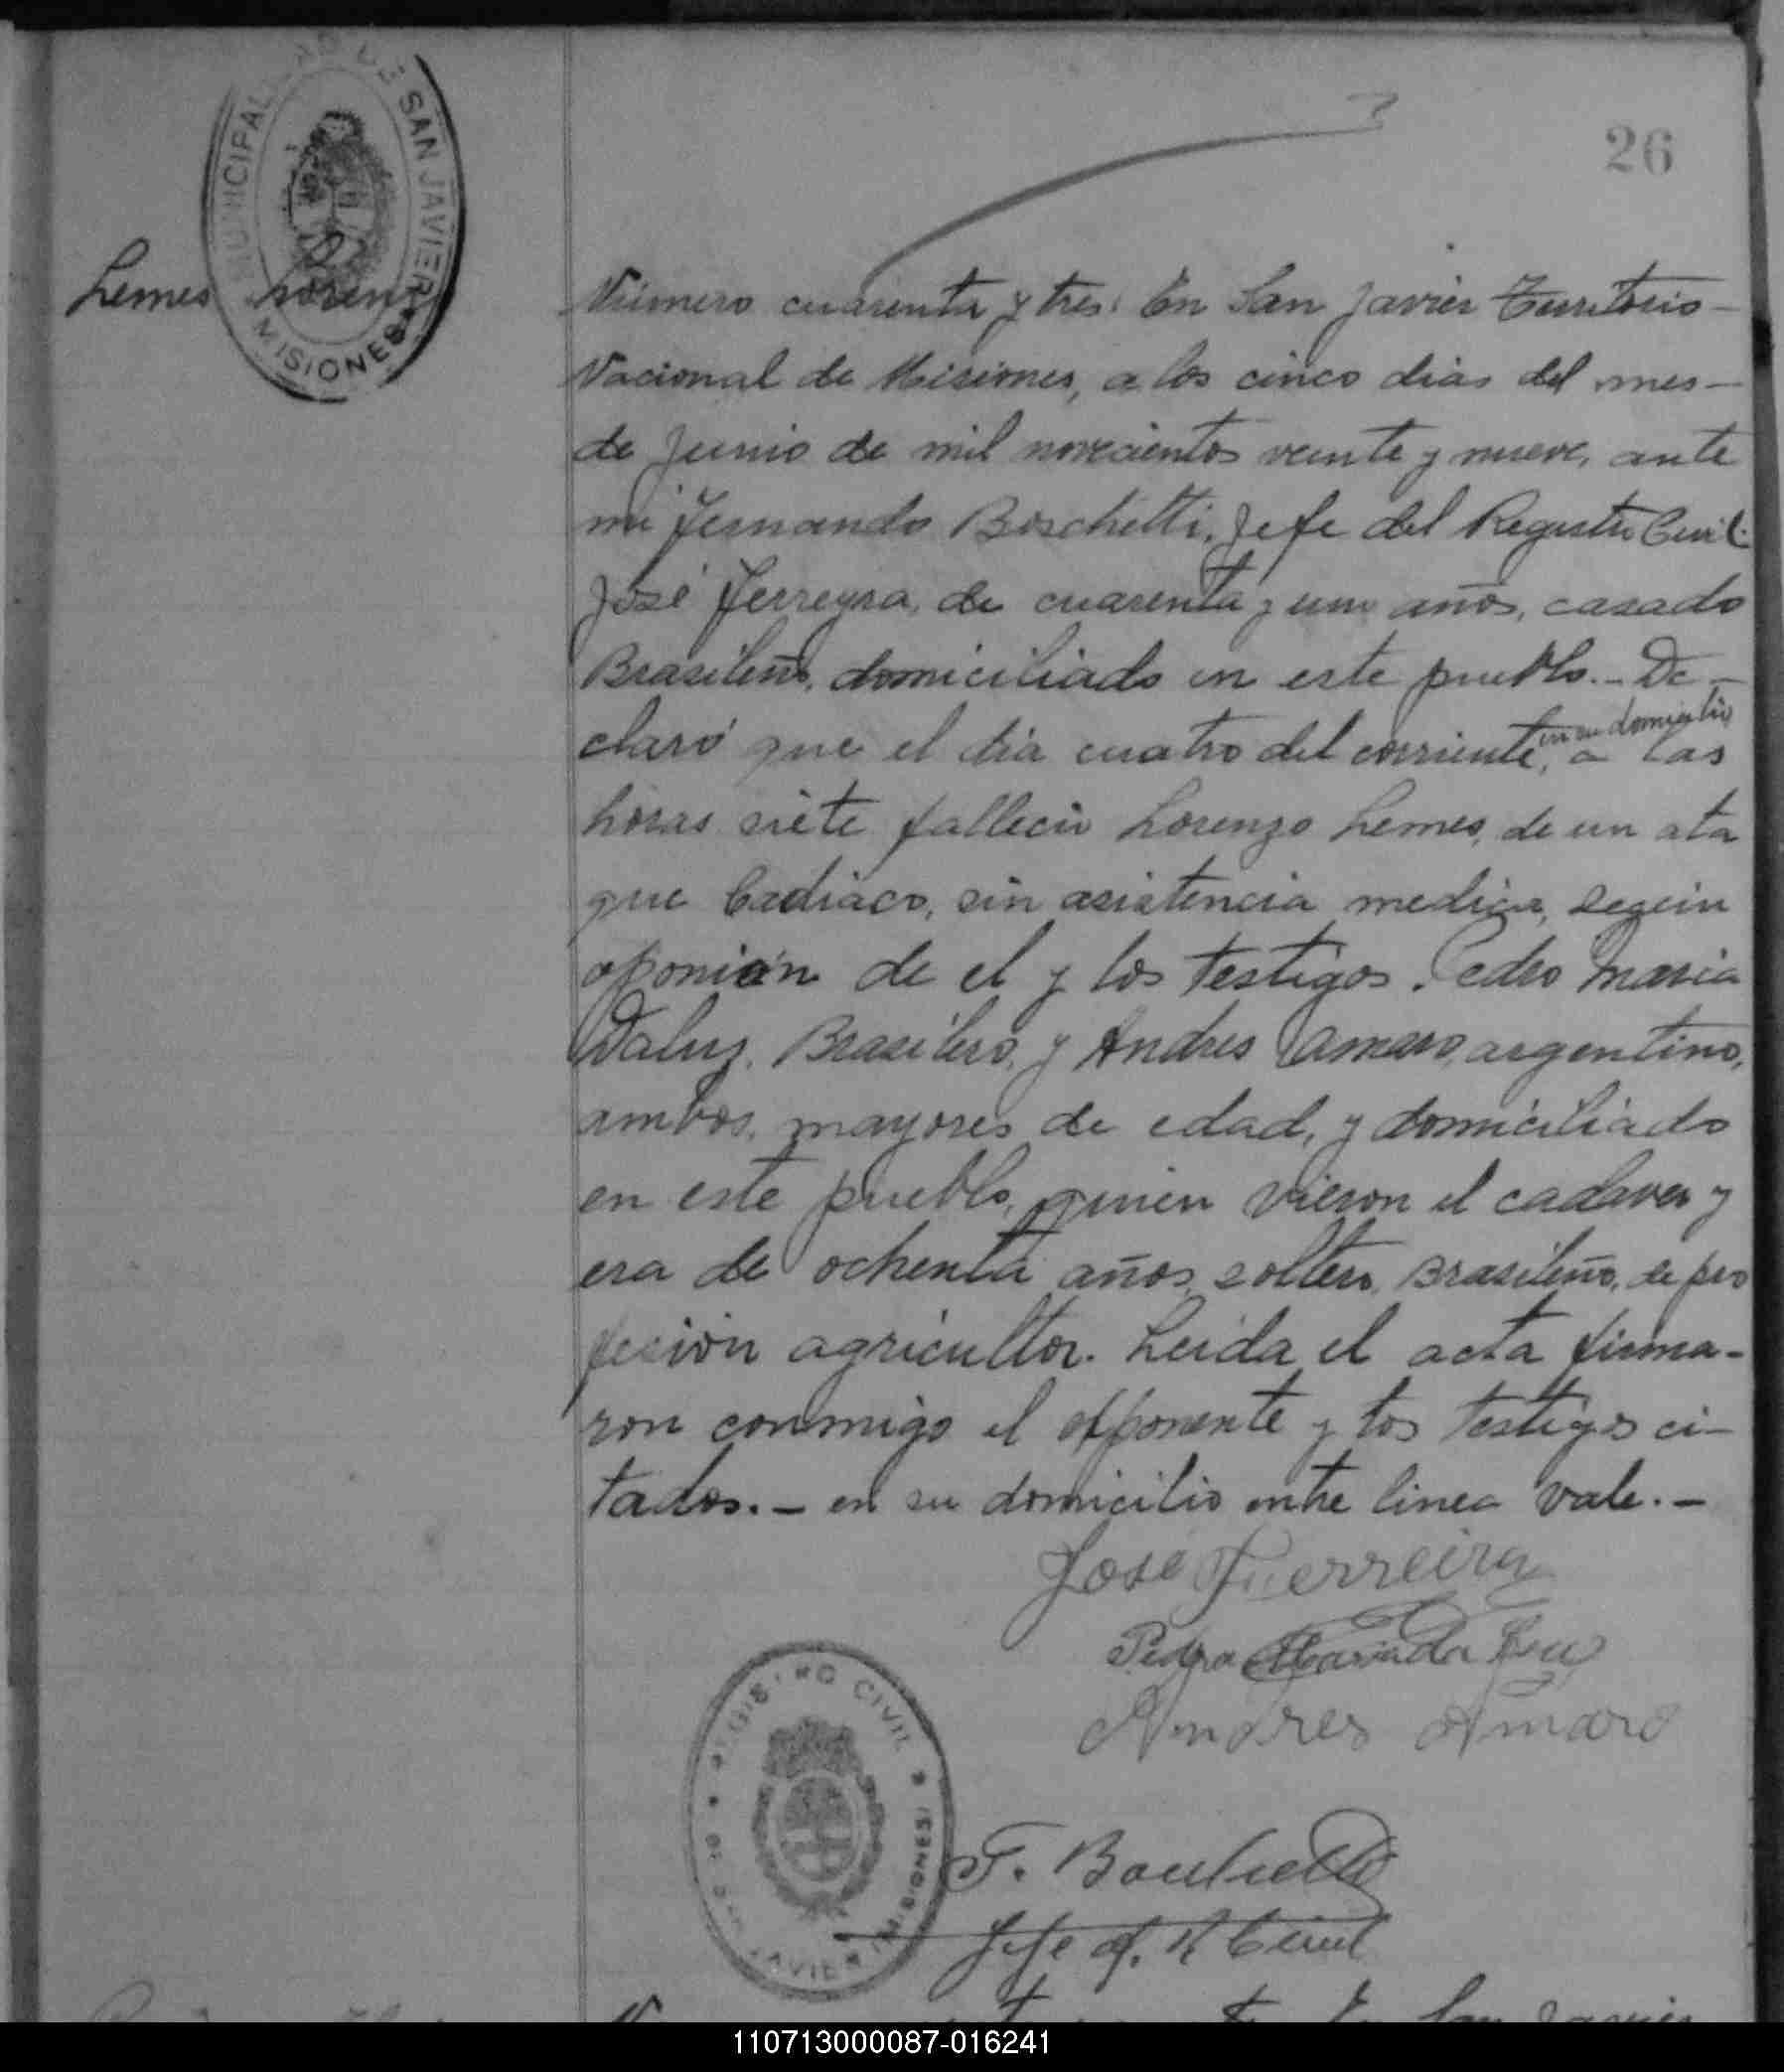 MUNICIPALIDAD DE SAN JAVIER
MISIONES
26
Lemes Lorenzo
Número cuarenta y tres: En San Javier Territorio —
Nacional de Misiones, a los cinco dias del mes —
de Junio de mil novecientos veinte y nueve, ante
mi Fernando Boschetti, Jefe del Registro Civil
José Ferreyra, de cuarenta y un años, casado
Brasileño, domiciliado en este pueblo. - De -
en su domicilio
claró que el dia cuatro del corriente, a las
horas siete fallecio Lorenzo Lemes, de un ata
que Cadiaco, sin asistencia medica, según
oponión de el y los testigos. Pedro Maria
Daluz, Brasilero, y Andres Amaro, argentino,
ambos, mayores de edad, y domiciliado
en este pueblo, quien vieron el cadaver y
era de ochenta años, soltero, Brasileño, de pro
fesión agricultor. Leida el acta firma-
ron conmigo el opponente y los testigos ci-
tados. - en su domicilio entre linea vale. -
Jose Fierreira
Pedro Maria da Luz
Andres Amaro
REGISTRO CIVIL
DE SAN JAVIER (MISIONES)
F. Boschetti
Jefe d. R Civil
110713000087-016241